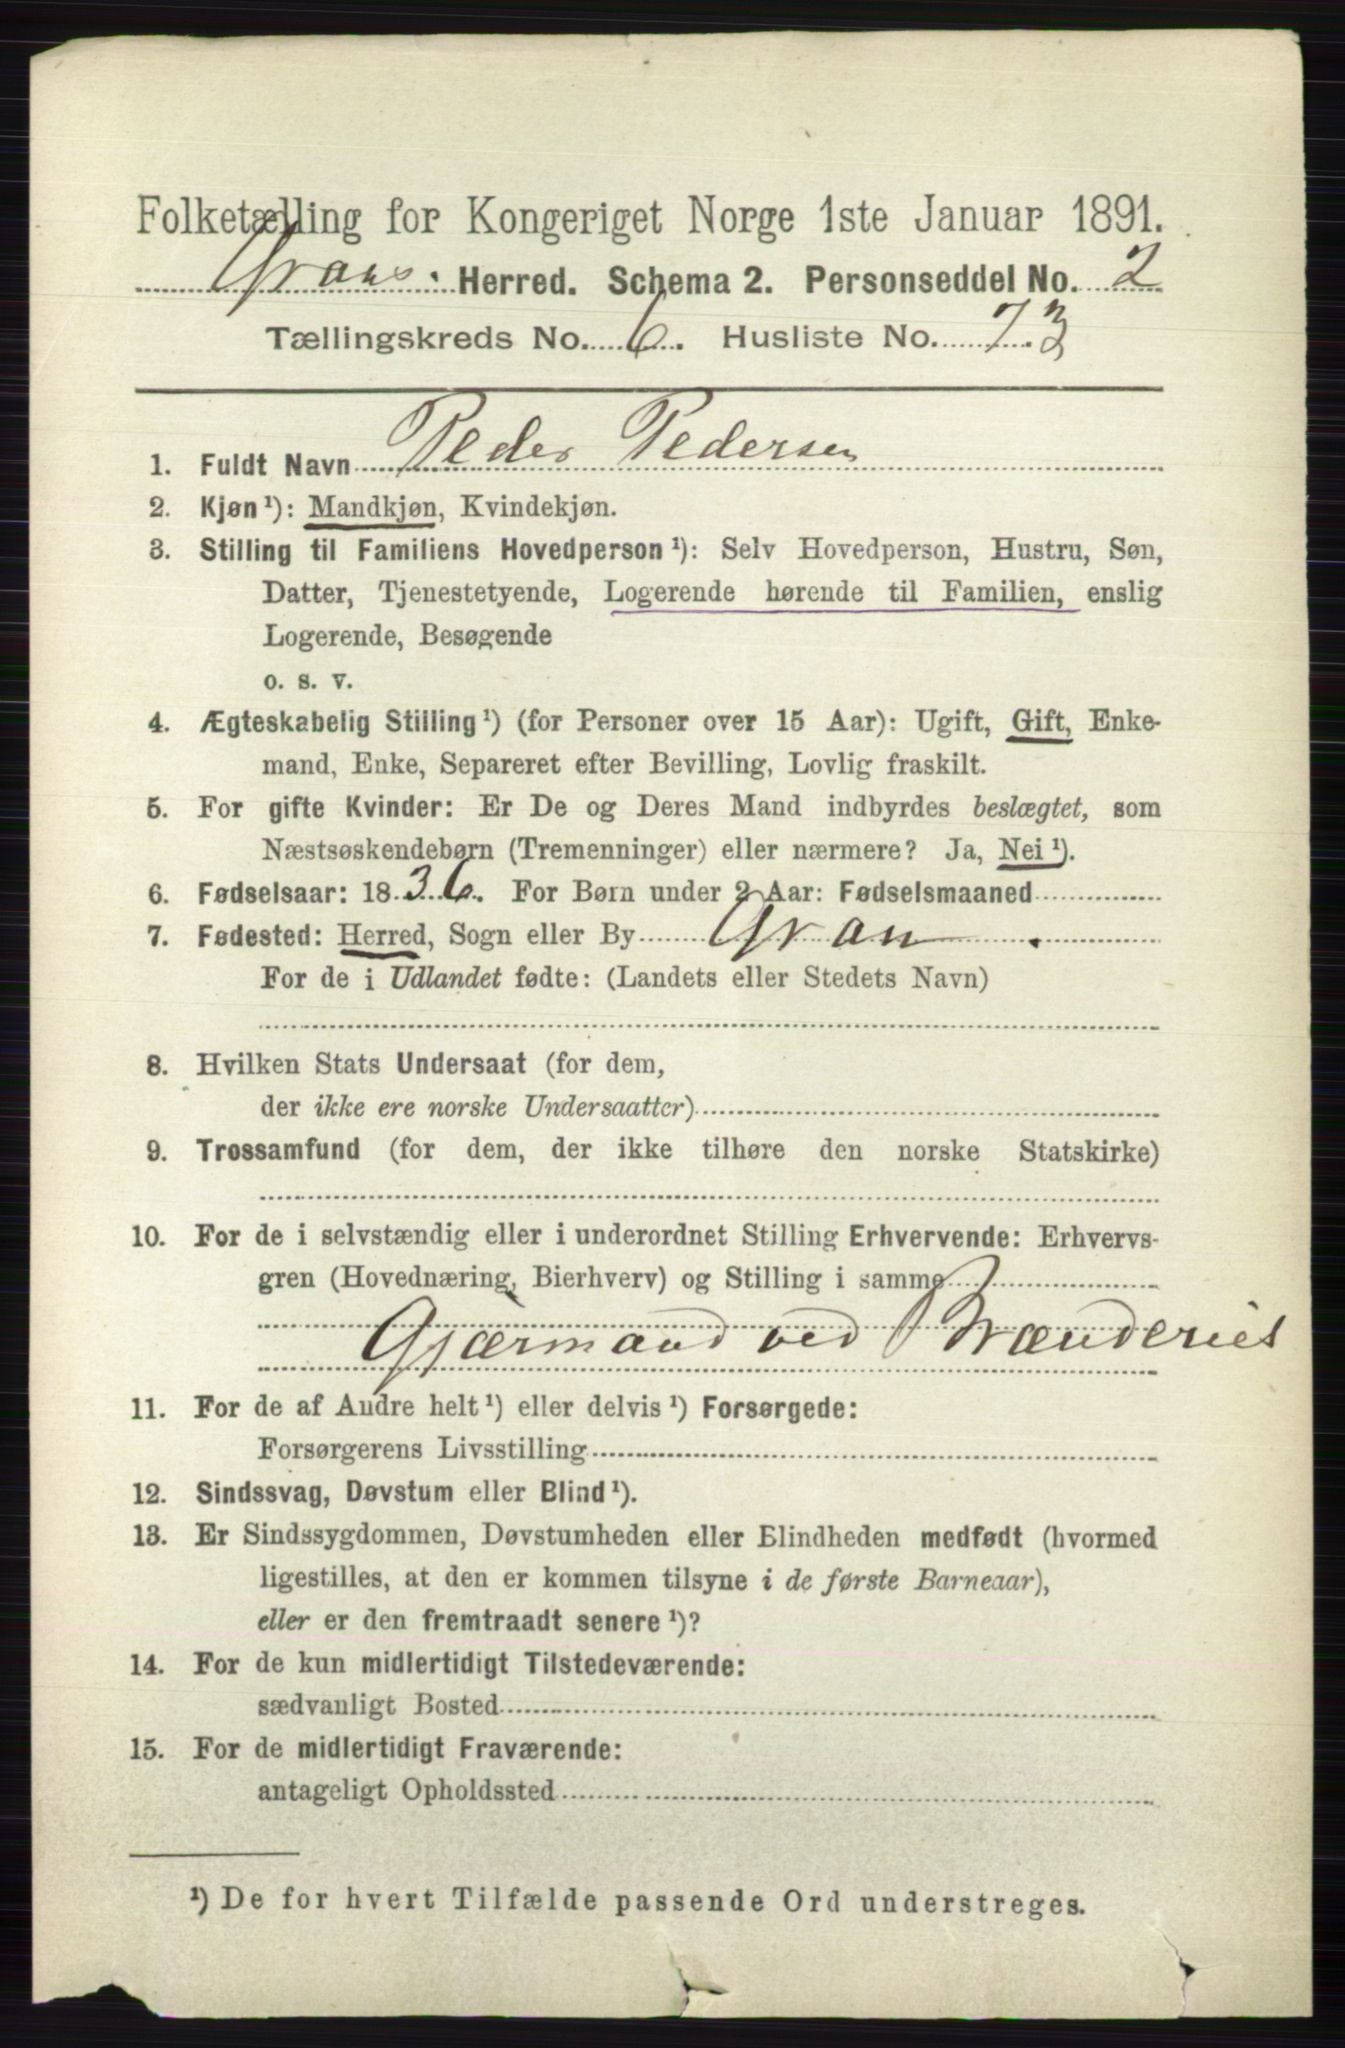 Folketælling for Kongeriget Norge 1ste Januar 1891.
Grans Herred. Schema 2. Personseddel No. 2
Tællingskreds No. 6. Husliste No. 73
1. Fuldt Navn Peder Pedersen
2. Kjøn ¹): Mandkjøn, Kvindekjøn.
3. Stilling til Familiens Hovedperson ¹): Selv Hovedperson, Hustru, Søn,
Datter, Tjenestetyende, Logerende hørende til Familien, enslig
Logerende, Besøgende
o. s. v.
4. Ægteskabelig Stilling ¹) (for Personer over 15 Aar): Ugift, Gift, Enke-
mand, Enke, Separeret efter Bevilling, Lovlig fraskilt.
5. For gifte Kvinder: Er De og Deres Mand indbyrdes beslægtet, som
Næstsøskendebørn (Tremenninger) eller nærmere? Ja, Nei ¹).
6. Fødselsaar: 1836. For Børn under 2 Aar: Fødselsmaaned
7. Fødested: Herred, Sogn eller By Gran
For de i Udlandet fødte: (Landets eller Stedets Navn)
8. Hvilken Stats Undersaat (for dem,
der ikke ere norske Undersaatter)
9. Trossamfund (for dem, der ikke tilhøre den norske Statskirke)
10. For de i selvstændig eller i underordnet Stilling Erhvervende: Erhvervs-
gren (Hovednæring, Bierhverv) og Stilling i samme
Gjærmand ved Brænderiet
11. For de af Andre helt ¹) eller delvis ¹) Forsørgede:
Forsørgerens Livsstilling
12. Sindssvag, Døvstum eller Blind ¹).
13. Er Sindssygdommen, Døvstumheden eller Blindheden medfødt (hvormed
ligestilles, at den er kommen tilsyne i de første Barneaar),
eller er den fremtraadt senere ¹)?
14. For de kun midlertidigt Tilstedeværende:
sædvanligt Bosted
15. For de midlertidigt Fraværende:
antageligt Opholdssted
¹) De for hvert Tilfælde passende Ord understreges.